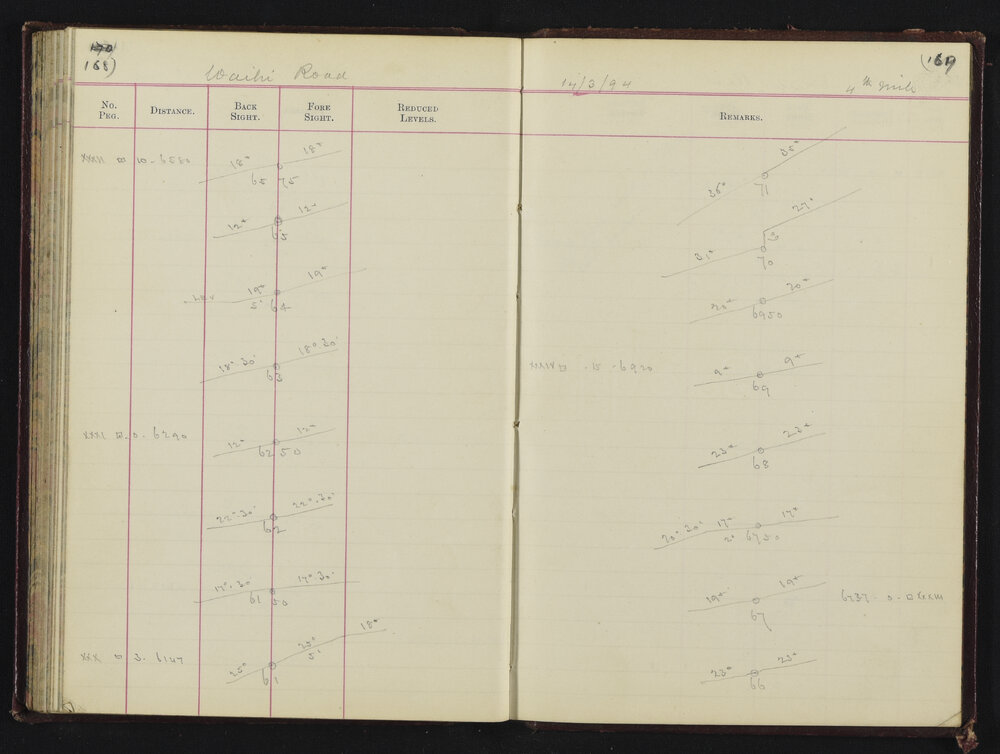 168)
Waihi Road
No. Peg.
Distance.
Back Sight.
Fore Sight.
Reduced Levels.
XXXII 10 - 6580
18° 18°
65 75
12° 12°
65
19° 19°
5' 64
18° 30' 18° 30'
63
XXXI 0 - 6290
12° 12°
62 50
22° 30' 22° 30'
62
17° 30 17° 30'
61 50
XXX 3 - 6147
25° 25° 18°
5'
61
(169
14/3/94
4th mile
Remarks.
35° 35°
71
31° 27°
3
70
20° 20°
6950
XXXIV 15 - 6920
9° 9°
69
23° 23°
68
20° 30' 17° 17°
2° 6750
19° 19°
67
6737 - 0 - XXXIII
23° 23°
66